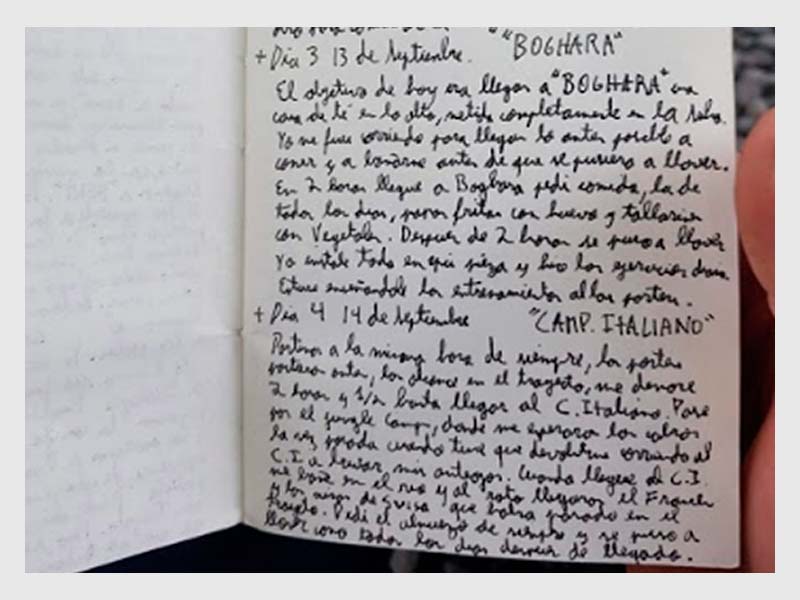 "BOGHARA"
+ Dia 3 13 de Septiembre.
El objetivo de hoy era llegar a "BOGHARA" una
casa de té en lo alto, metida completamente en la selva.
Yo me fuui corriendo para llegar lo antes posible a
comer y a bañarme antes de que se pusiera a llover.
En 2 horas llegue a Boghara pedi comida, la de
todos los dias, papas fritas con huevo y tallarines
con Vegetales. Despues de 2 horas se puso a llover
Yo instale todo en mi pieza y hice los ejercicios
Estuve enseñandole los entrenamientos a los porters.
+ Dia 4 14 de Septiembre "CAMP. ITALIANO"
Partimos a la misma hora de siempre, los porters
partieron antes, los alcance en el trayecto, me demore
2 horas y 1/2 hasta llegar al C. Italiano. Pase
por el jungle Camp, donde me esperaron los cabros
la vez pasada cuando tuve que devolverme corriendo al
C.I a buscar mis anteojos. Cuando llegue al C.I.
me bañe en el rio y al rato llegaron el Frances
y los amigos de Suiza que habia pasado en el
trayecto. Pedi el almuerzo de siempre y se puso a
llover como todos los dias despues de llegado.